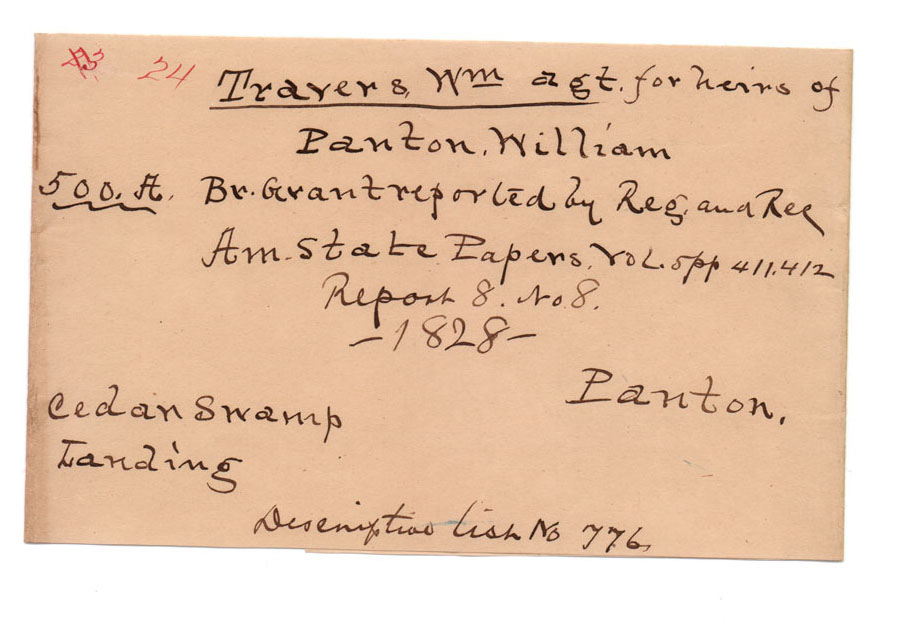 24
Travers, Wm agt. for heirs of
Panton, William
500. A. Br. Grant reported by Reg. and Rec
Am. State Papers. Vol. 5 pp 411.412
Report 8. No 8.
- 1828 -
Panton.
Cedar Swamp
Landing
Descriptive list No 776